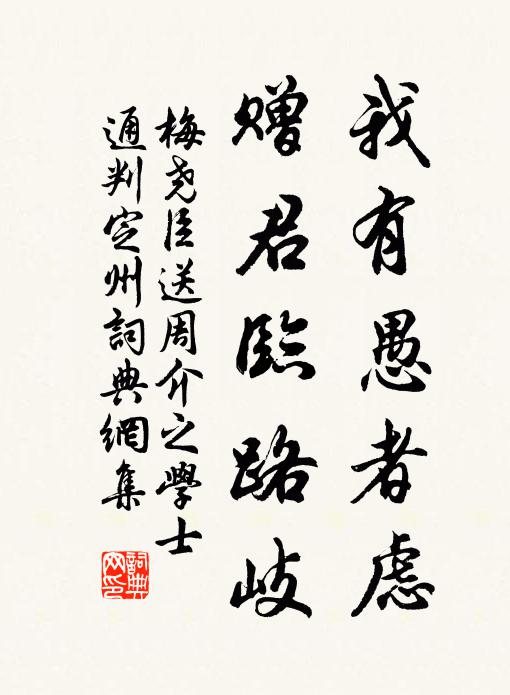 我有愚者慮
贈君臨路歧
梅堯臣送周介之學士
通判定州詞典網集
詞典網印